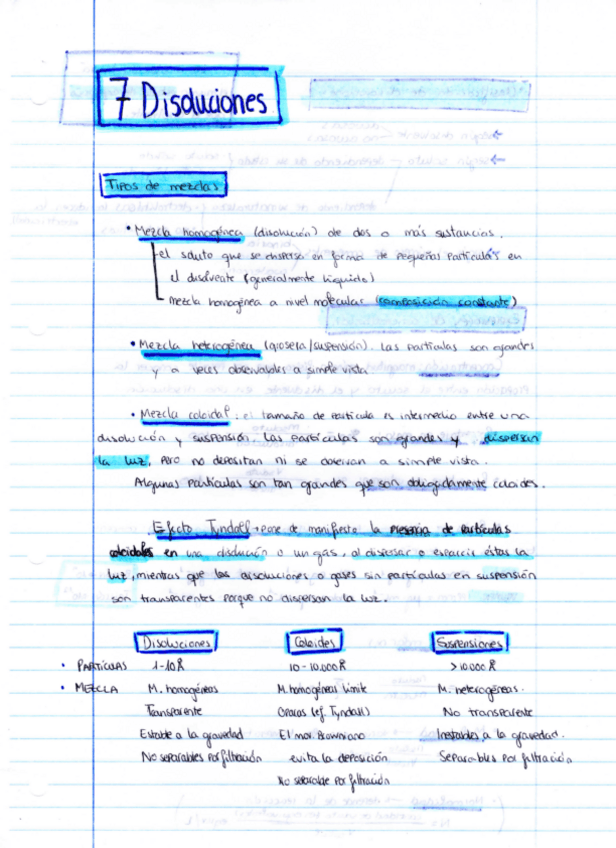 7 Disoluciones
Tipos de mezclas
• Mezcla homogénea (disolución) de dos o más sustancias.
el soluto que se dispersa en forma de pequeñas partículas en
el disolvente (generalmente líquido)
mezcla homogénea a nivel molecular (composición constante)
• Mezcla heterogénea (grosera/suspensión). Las partículas son grandes
y a veces observables a simple vista
• Mezcla coloidal: el tamaño de partícula es intermedio entre una
disolución y suspensión. Las partículas son grandes y dispersan
la luz, pero no depositan ni se observan a simple vista.
Algunas partículas son tan grandes que son obligadamente coloides.
Efecto Tyndall → pone de manifiesto la presencia de partículas
coloidales en una disolución o un gas, al dispersar o esparcir éstas la
luz, mientras que las disoluciones o gases sin partículas en suspensión
son transparentes porque no dispersan la luz.
Disoluciones Coloides Suspensiones
• PARTÍCULAS 1-10Å 10-10.000Å >10.000Å
• MEZCLA M. homogéneas M. homogéneas límite M. heterogéneas.
Transparente Opacas (ef. Tyndall) No transparente
Estable a la gravedad El mov. Browniano Inestables a la gravedad.
No separables por filtración evita la deposición Separables por filtración
No separable por filtración